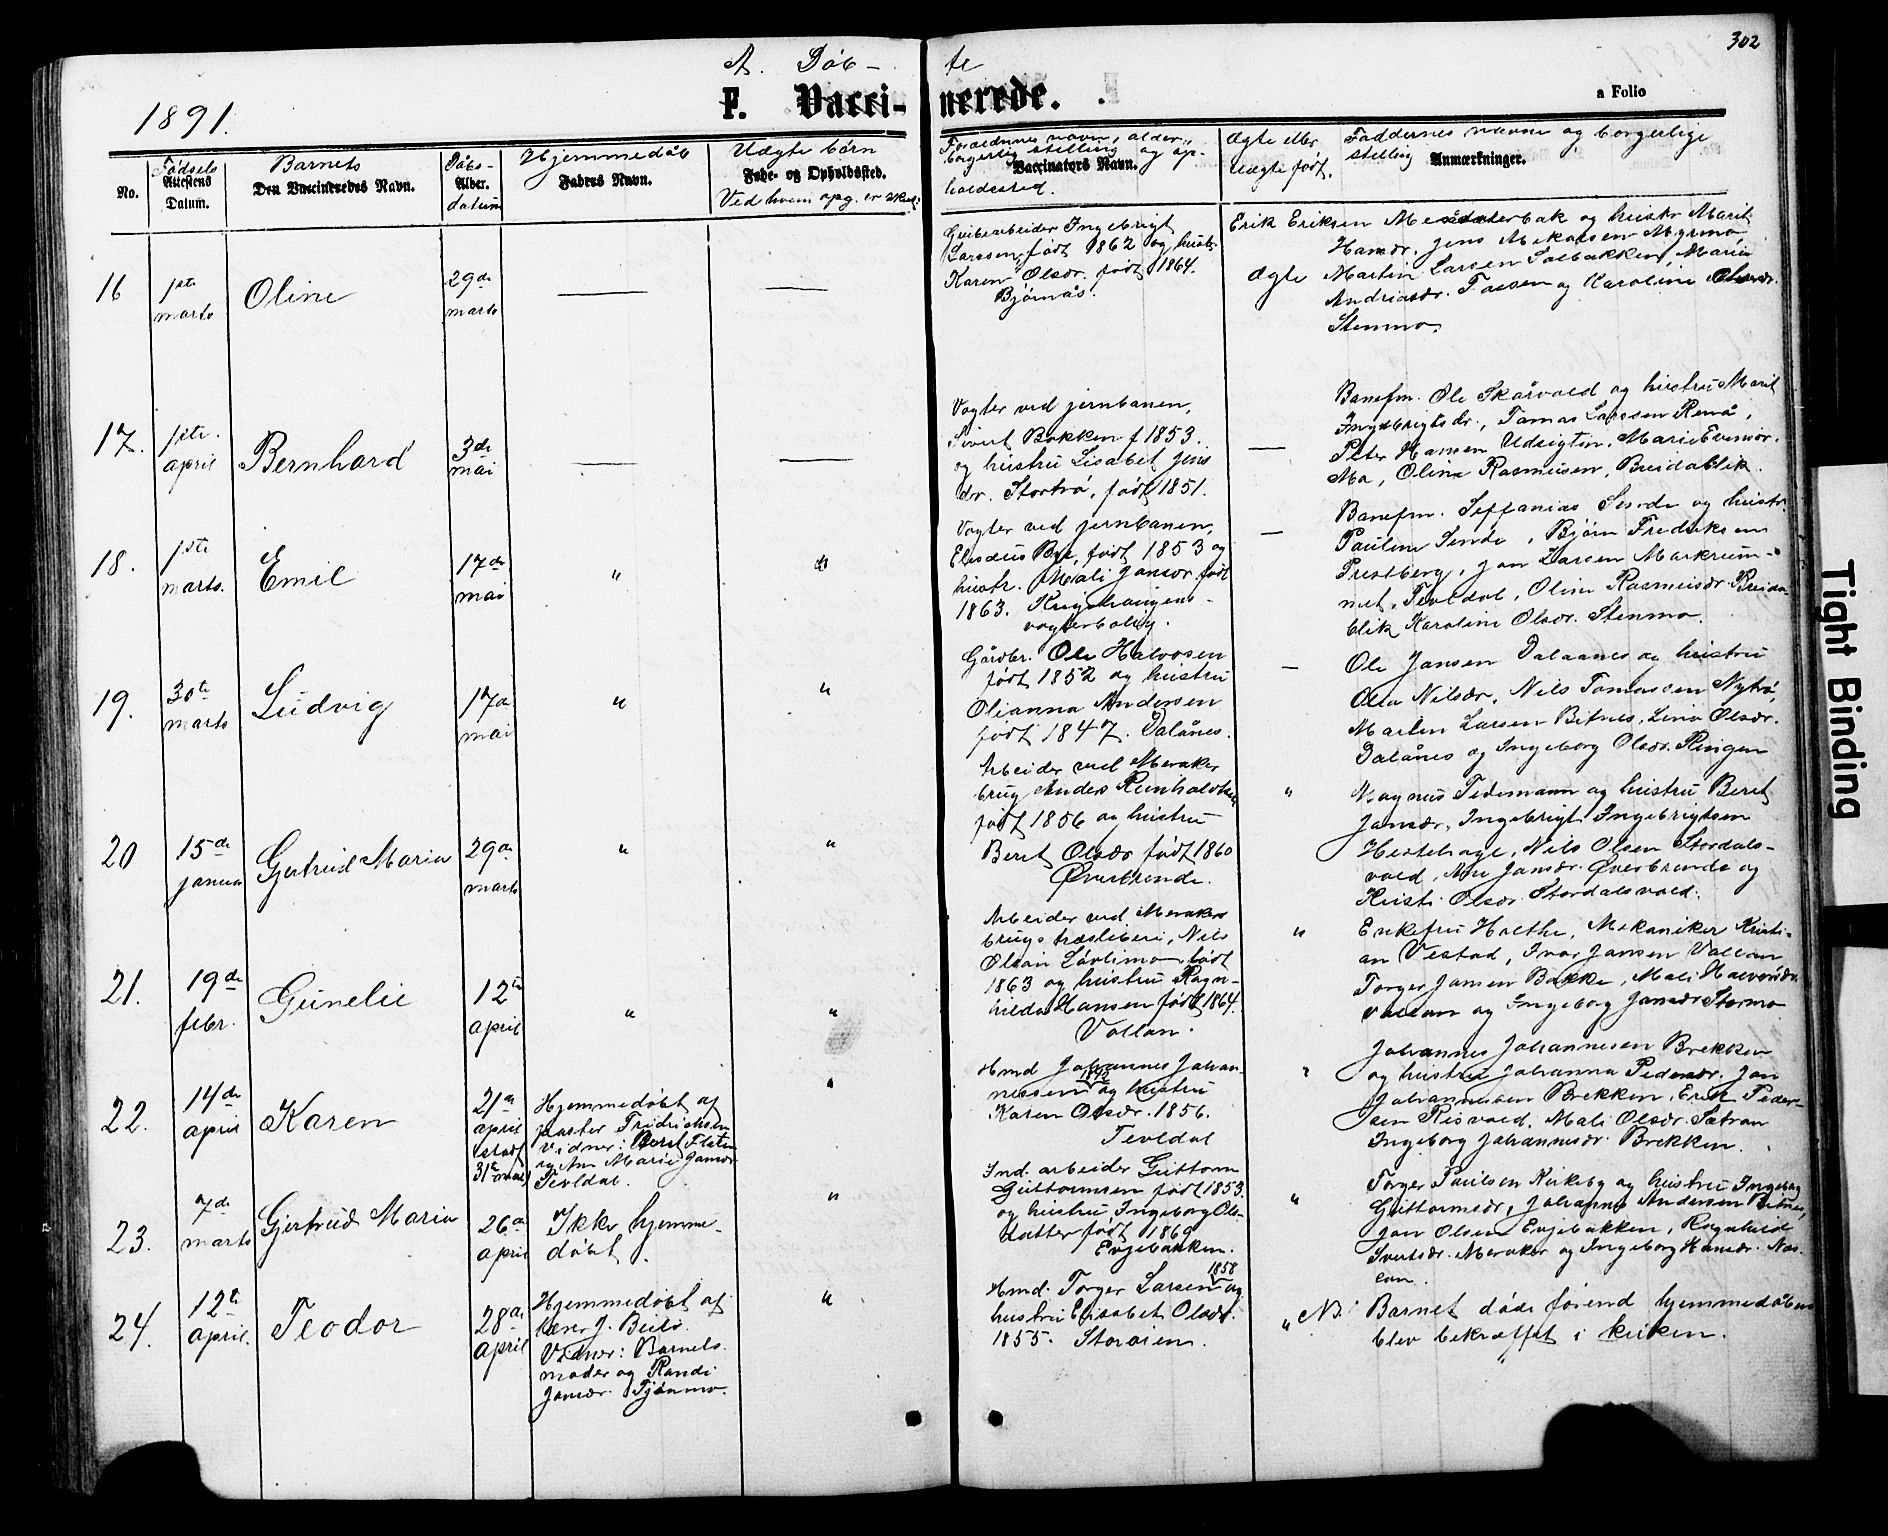 302
A. Døb- te
1891.
F. Vacci- nerede.
a Folio
No.
Fødsels
Attestens
Datum.
Barnets
Den Vaccineredes Navn.
Dåbs-
Alder.
datum
Hjemmedåb
Faders Navn.
Uægte børn
Føde- og Opholdssted.
Ved hvem opg. er skeet
Forældrenes navn, alder,
borgerlig stilling og op-
Vaccinators Navn.
holdssted.
Ægte eller
Uægte født.
Faddernes navne og borgerlige
stilling
Anmærkninger.
16
1ste
marts
Oline
29de
marts
Grubearbeider Ingebrigt
Larssen, født 1862 og hustr.
Karen Olsdr. født 1864.
Bjørnås.
ægte
Erik Eriksen og hustr. Marit
Hansdr. Jens Mikalsen Myrmo
Martin Larsen Solbakken, Marie
Andriasdr. Fossen og Karoline Olsdr.
Stenmo.
17.
1ste
april
Bernhard
3de
mai
Vogter ved jernbanen,
Sivert Bakken f 1853.
og hustru Lisabet Jens
dr. Stortrø, født 1851.
Banefm. Ole Skårvold og hustru Marit
Ingebrigtsdr., Tomas Larssen Renå,
Peter Hansen Udsigten, Marie Evensdr.
Mo, Oline Rasmusen, Breidablik.
18.
1ste
marts.
Emil
17de
mai
"
"
Vogter ved jernbanen,
Elisæus Bye, født 1853 og
hustr. Mali Jonsdr født
1863. Krigshaugens-
vogterbolig.
Banefm. Seffanias Sende og hustr.
Pauline Sende, Bjørn Fredriksen
Prestberg, Jon Larsen Markrum-
met, Tevldal, Oline Rasmusdr. Breida
blik Karoline Olsdr. Stenmo.
19.
30te
marts
Ludvig
17de
mai
"
"
Gårdbr. Ole Halvosen
født 1852 og hustru
Olianna Andersen
født 1847. Dalånes.
Ole Jansen Dalaanes og hustru
Olea Nilsdr. Nils Tomassen Nytrø,
Marten Larsen Bitnes, Lina Olsdr.
Dalånes og Ingeborg Olsdr. Ringen
20
15de
januar
Gjertrud Maria
29de
marts
"
"
Arbeider ved Meraker
brug Anders Reinholdtsen
født 1856 og hustru
Beret Olsdr født 1860
Øverbrende.
"
Magnus Tidemann og hustru Beret
Jansdr., Ingebrigt Ingebrigtsen
Hestehage, Nils Olsen Stordals-
vold, Ane Jansdr. Øverbrende og
Kristi Olsdr. Stordalsvold.
21.
19de
febr.
Gunelie
12te
april
"
"
Arbeider ved Meraker
brugs træsliberi, Nils
Olsen Løvlimo født
1863 og hustru Ragn-
hilda Hansen født 1864.
Vollan.
"
Enkefru Holthe, Mekaniker Kristi-
an Vestad, Ivar Jansen Vollan
Torger Jansen Bakke, Mali Halvorsdr.
Vollan og Ingeborg Jansdr Stormo
22.
14de
april
Karen
21de
april
stadf
31te mai
Hjemmedøbt af
pastor Fridrichsen
Vidner: Beret Flaten
og Ane Marie Jansdr
Tevldal.
"
Hmd Johannes Johan-
nessen og hustru
Karen Olsdr. 1856.
Tevldal
Johannes Johannesen Brekken
og hustru Johanna Pedersdr. Jon
Johannesen Brekken, Erik Peder-
sen Risvold, Mali Olsdr. Sætran
Ingeborg Johannesdr. Brekken.
23.
7de
marts
Gjertrud Maria
26de
april
Ikke hjemme-
døbt.
"
Ind. arbeider Guttorm
Guttormsen født 1853.
og hustru Ingeborg Ols-
datter født 1869
Evjebakken.
"
Torger Paulsen Kirkeby og hustru Ingeborg
Guttormsdr., Johannes Andersen Bitnes,
Jon Olsen Evjebakken, Ragnhild
Ivertsdr. Meraker og Ingeborg Hansdr. Næs-
24.
12te
april.
Teodor
28de
april
Hjemmedøbt af
lærer J. Beitø.
Vidner: Barnets
moder og Randi
Jonsdr. Tjønmo.
"
1858
Hmd. Torger Larsen og
hustru Elisabet Olsdr.
1855. Storøien.
"
NB. Barnet døde førend hjemmedåben
blev bekræftet i kirken.
Tight Binding